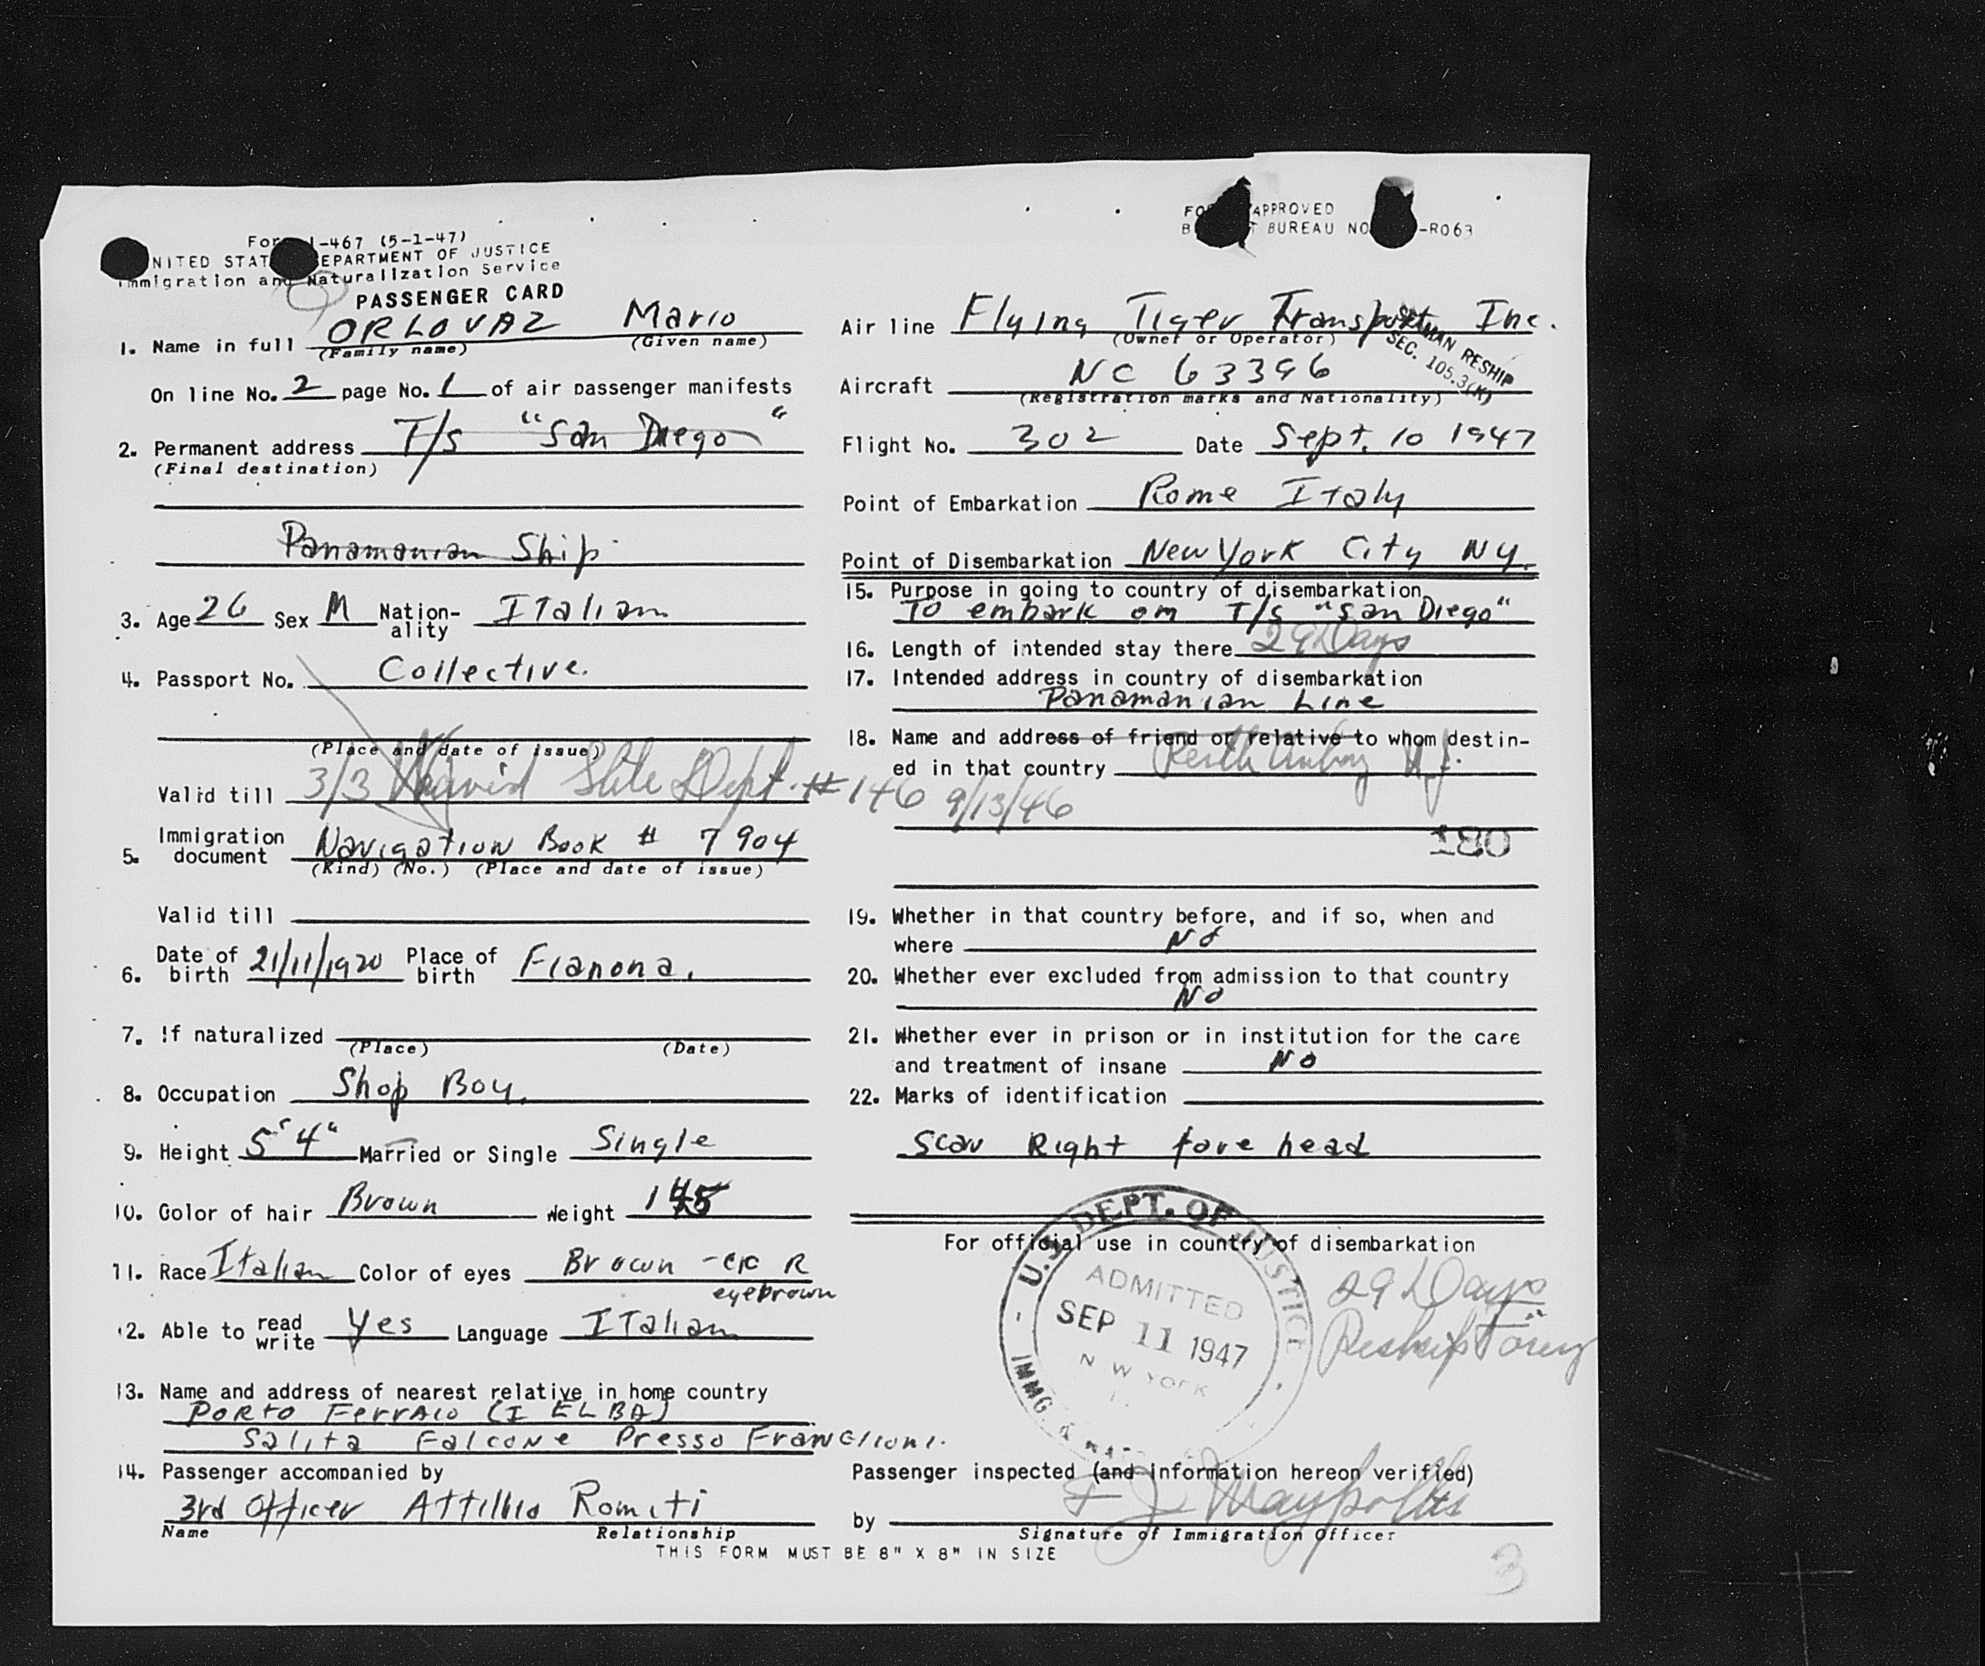 Form I-467 (5-1-47)
UNITED STATES DEPARTMENT OF JUSTICE
Immigration and Naturalization Service
PASSENGER CARD
FORM APPROVED
BUREAU NO. -R063
1. Name in full ORLOVAZ Mario
(Family name) (Given name)
On line No. 2 page No. 1 of air passenger manifests
2. Permanent address T/s "San Diego"
(Final destination)
Panamanian Ship
3. Age 26 Sex M Nation-ality Italian
4. Passport No. Collective.
(Place and date of issue)
Valid till 3/3 Waived State Dept. # 146 9/13/46
5. Immigration document Navigation Book # 7904
(Kind) (No.) (Place and date of issue)
Valid till
6. Date of birth 21/11/1920 Place of birth Fianona.
7. If naturalized
(Place) (Date)
8. Occupation Shop Boy.
9. Height 5'4" Married or Single Single
10. Color of hair Brown Weight
11. Race Italian Color of eyes Brown R
eyebrown
12. Able to read write Yes Language Italian
13. Name and address of nearest relative in home country
Porto Ferraio (I ELBA)
Salita Falcone Presso Frangioni.
14. Passenger accompanied by
3rd Officer Attilio Romiti
Name Relationship
THIS FORM MUST BE 8" X 8" IN SIZE
Air line Flying Tiger Transport Inc.
(Owner or Operator)
SEAMAN RESHIP
SEC. 105.3(K)
Aircraft NC 63396
(Registration marks and Nationality)
Flight No. 302 Date Sept. 10 1947
Point of Embarkation Rome Italy
Point of Disembarkation New York City NY.
15. Purpose in going to country of disembarkation
To embark on T/s "San Diego"
16. Length of intended stay there 29 Days
17. Intended address in country of disembarkation
Panamanian Line
18. Name and address of friend or relative to whom destin-
ed in that country Perth Amboy N.J.
180
19. Whether in that country before, and if so, when and
where No
20. Whether ever excluded from admission to that country
No
21. Whether ever in prison or in institution for the care
and treatment of insane No
22. Marks of identification
Scar Right fore head
For official use in country of disembarkation
U.S. DEPT. OF JUSTICE
ADMITTED
SEP 11 1947
N W YORK
IMMG. & NAT
29 Days
Reship Foreig
Passenger inspected (and information hereon verified)
by
Signature of Immigration Officer
3